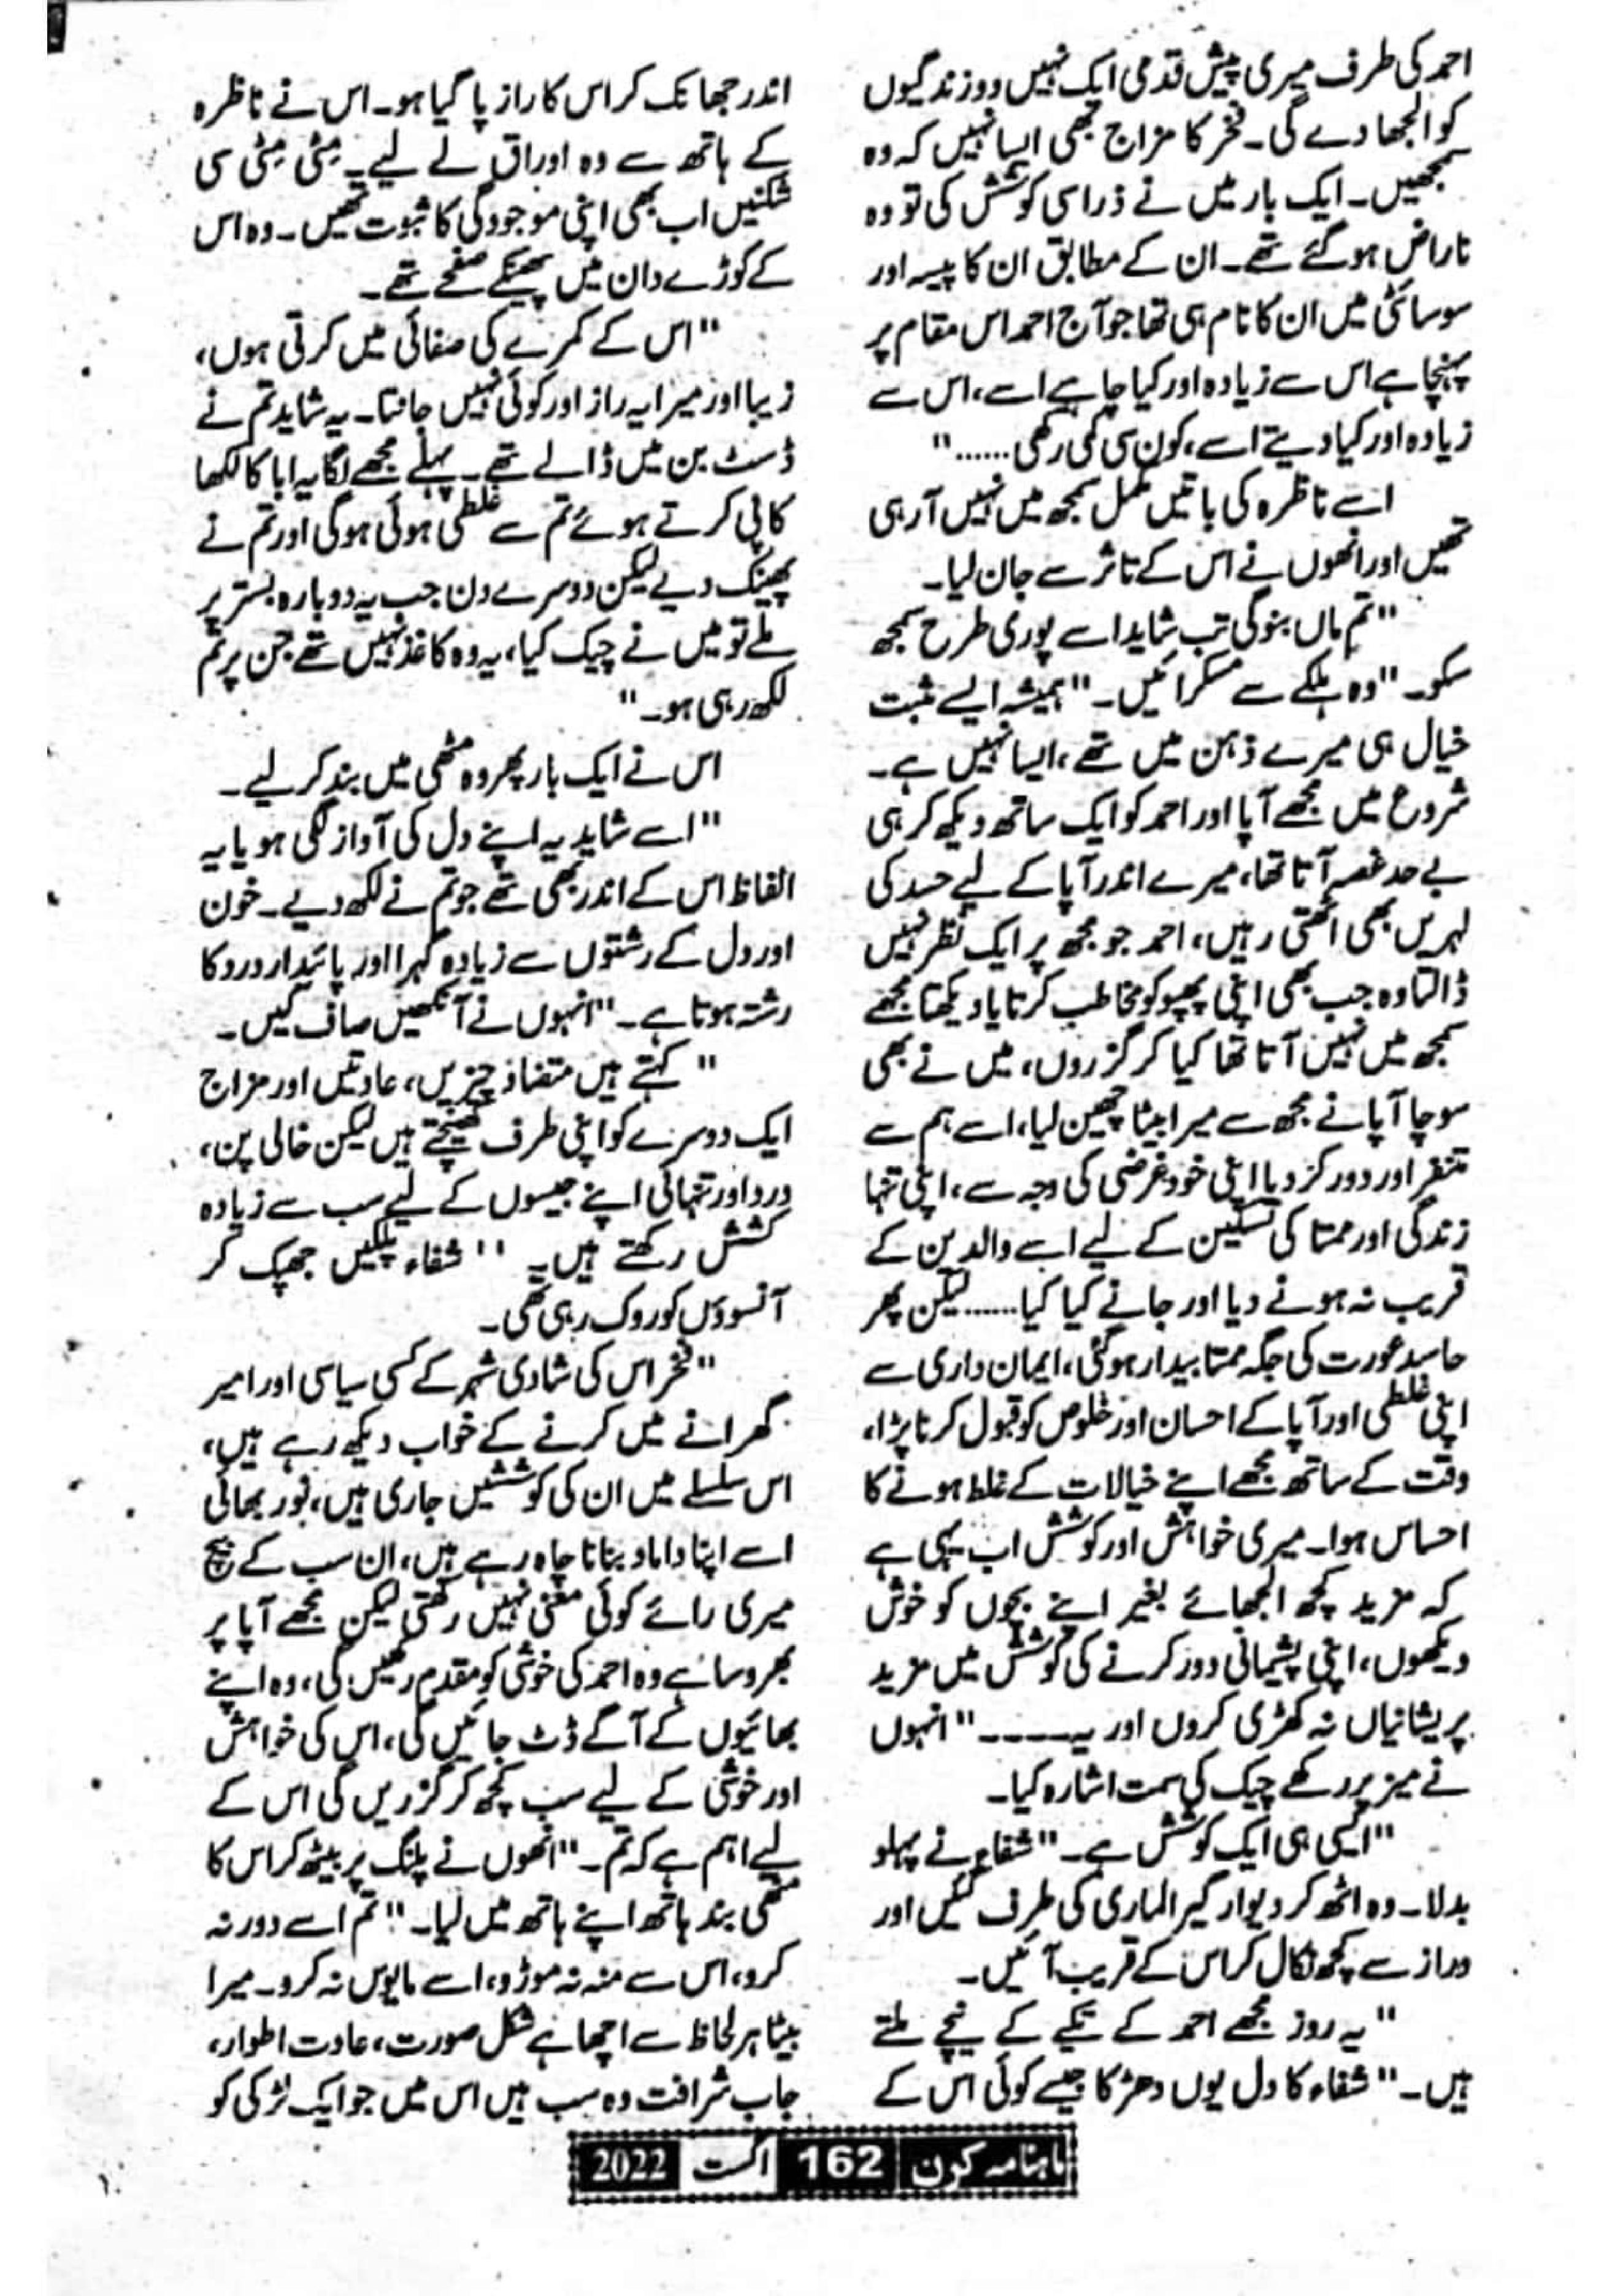 احمد کی طرف میری پیش قدمی ایک نہیں دو زندگیوں
کو الجھا دے گی۔ فخر کا مزاج تبھی ایسا نہیں کہ وہ
سمجھیں۔ ایک بار میں نے ذرا سی کوشش کی تو وہ
ناراض ہو گئے تھے۔ ان کے مطابق ان کا پیسہ اور
سوسائٹی میں ان کا نام ہی تھا جو آج احمد اس مقام پر
پہنچا ہے اس سے زیادہ اور کیا چاہے اسے، اس سے
زیادہ اور کیا دیتے اسے، کون سی کمی رکھی......"
اسے ناظرہ کی باتیں مکمل سمجھ میں نہیں آ رہی
تھیں اور انھوں نے اس کے تاثر سے جان لیا۔
"تم ماں بنو گی تب شاید اسے پوری طرح سمجھ
سکو۔" وہ ہلکے سے مسکرائیں۔ "ہمیشہ ایسے مثبت
خیال ہی میرے ذہن میں تھے، ایسا نہیں ہے۔
شروع میں مجھے آپا اور احمد کو ایک ساتھ دیکھ کر ہی
بے حد غصہ آتا تھا، میرے اندر آپا کے لیے حسد کی
لہریں بھی اٹھتی رہیں، احمد جو مجھ پر ایک نظر نہیں
ڈالتا وہ جب بھی اپنی پھپو کو مخاطب کرتا یا دیکھتا مجھے
سمجھ میں نہیں آتا تھا کیا کر گزروں، میں نے بھی
سوچا آپا نے مجھ سے میرا بیٹا چھین لیا، اسے ہم سے
متنفر اور دور کر دیا اپنی خود غرضی کی وجہ سے، اپنی تنہا
زندگی اور ممتا کی تسکین کے لیے اسے والدین کے
قریب نہ ہونے دیا اور جانے کیا کیا...... لیکن پھر
حاسد عورت کی جگہ ممتا بیدار ہو گئی، ایمان داری سے
اپنی غلطی اور آپا کے احسان اور خلوص کو قبول کرنا پڑا،
وقت کے ساتھ مجھے اپنے خیالات کے غلط ہونے کا
احساس ہوا۔ میری خواہش اور کوشش اب یہی ہے
کہ مزید کچھ الجھائے بغیر اپنے بچوں کو خوش
دیکھوں، اپنی پشیمانی دور کرنے کی کوشش میں مزید
پریشانیاں نہ کھڑی کروں اور یہ۔۔۔۔" انہوں
نے میز پر رکھے چیک کی سمت اشارہ کیا۔
"ایسی ہی ایک کوشش ہے۔" شفاء نے پہلو
بدلا۔ وہ اٹھ کر دیوار گیر الماری کی طرف گئیں اور
دراز سے کچھ نکال کر اس کے قریب آئیں۔
"یہ روز مجھے احمد کے تکیے کے نیچے ملتے
ہیں۔" شفاء کا دل یوں دھڑکا جیسے کوئی اس کے
اندر جھانک کر اس کا راز پا گیا ہو۔ اس نے ناظرہ
کے ہاتھ سے وہ اوراق لے لیے۔ مٹی مٹی سی
شکنیں اب بھی اپنی موجودگی کا ثبوت تھیں۔ وہ اس
کے کوڑے دان میں پھینکے صفحے تھے۔
"اس کے کمرے کی صفائی میں کرتی ہوں،
زیبا اور میرا یہ راز اور کوئی نہیں جانتا۔ یہ شاید تم نے
ڈسٹ بن میں ڈالے تھے۔ پہلے مجھے لگا یہ ابا کا لکھا
کاپی کرتے ہوئے تم سے غلطی ہوئی ہو گی اور تم نے
پھینک دیے لیکن دوسرے دن جب یہ دوبارہ بستر پر
ملے تو میں نے چیک کیا، یہ وہ کاغذ نہیں تھے جن پر تم
لکھ رہی ہو۔"
اس نے ایک بار پھر وہ مٹھی میں بند کر لیے۔
"اسے شاید یہ اپنے دل کی آواز لگی ہو یا یہ
الفاظ اس کے اندر بھی تھے جو تم نے لکھ دیے۔ خون
اور دل کے رشتوں سے زیادہ گہرا اور پائیدار درد کا
رشتہ ہوتا ہے۔" انہوں نے آنکھیں صاف کیں۔
"کہتے ہیں متضاد چیزیں، عادتیں اور مزاج
ایک دوسرے کو اپنی طرف کھینچتے ہیں لیکن خالی پن،
درد اور تنہائی اپنے جیسوں کے لیے سب سے زیادہ
کشش رکھتے ہیں۔" شفاء پلکیں جھپک کر
آنسوؤں کو روک رہی تھی۔
"فخر اس کی شادی شہر کے کسی سیاسی اور امیر
گھرانے میں کرنے کے خواب دیکھ رہے ہیں،
اس سلسلے میں ان کی کوششیں جاری ہیں، نور بھائی
اسے اپنا داماد بنانا چاہ رہے ہیں، ان سب کے بیچ
میری رائے کوئی معنی نہیں رکھتی لیکن مجھے آپا پر
بھروسا ہے وہ احمد کی خوشی کو مقدم رکھیں گی، وہ اپنے
بھائیوں کے آگے ڈٹ جائیں گی، اس کی خواہش
اور خوشی کے لیے سب کچھ کر گزریں گی اس کے
لیے اہم ہے کہ تم۔" انھوں نے پلنگ پر بیٹھ کر اس کا
مٹھی بند ہاتھ اپنے ہاتھ میں لیا۔ "تم اسے دور نہ
کرو، اس سے منہ نہ موڑو، اسے مایوس نہ کرو۔ میرا
بیٹا ہر لحاظ سے اچھا ہے شکل صورت، عادت اطوار،
جاب شرافت وہ سب ہیں اس میں جو ایک لڑکی کو
ماہنامہ کرن 162 اگست 2022